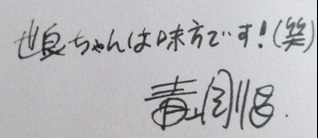 世良ちゃんは味方です!(笑)
青山剛昌